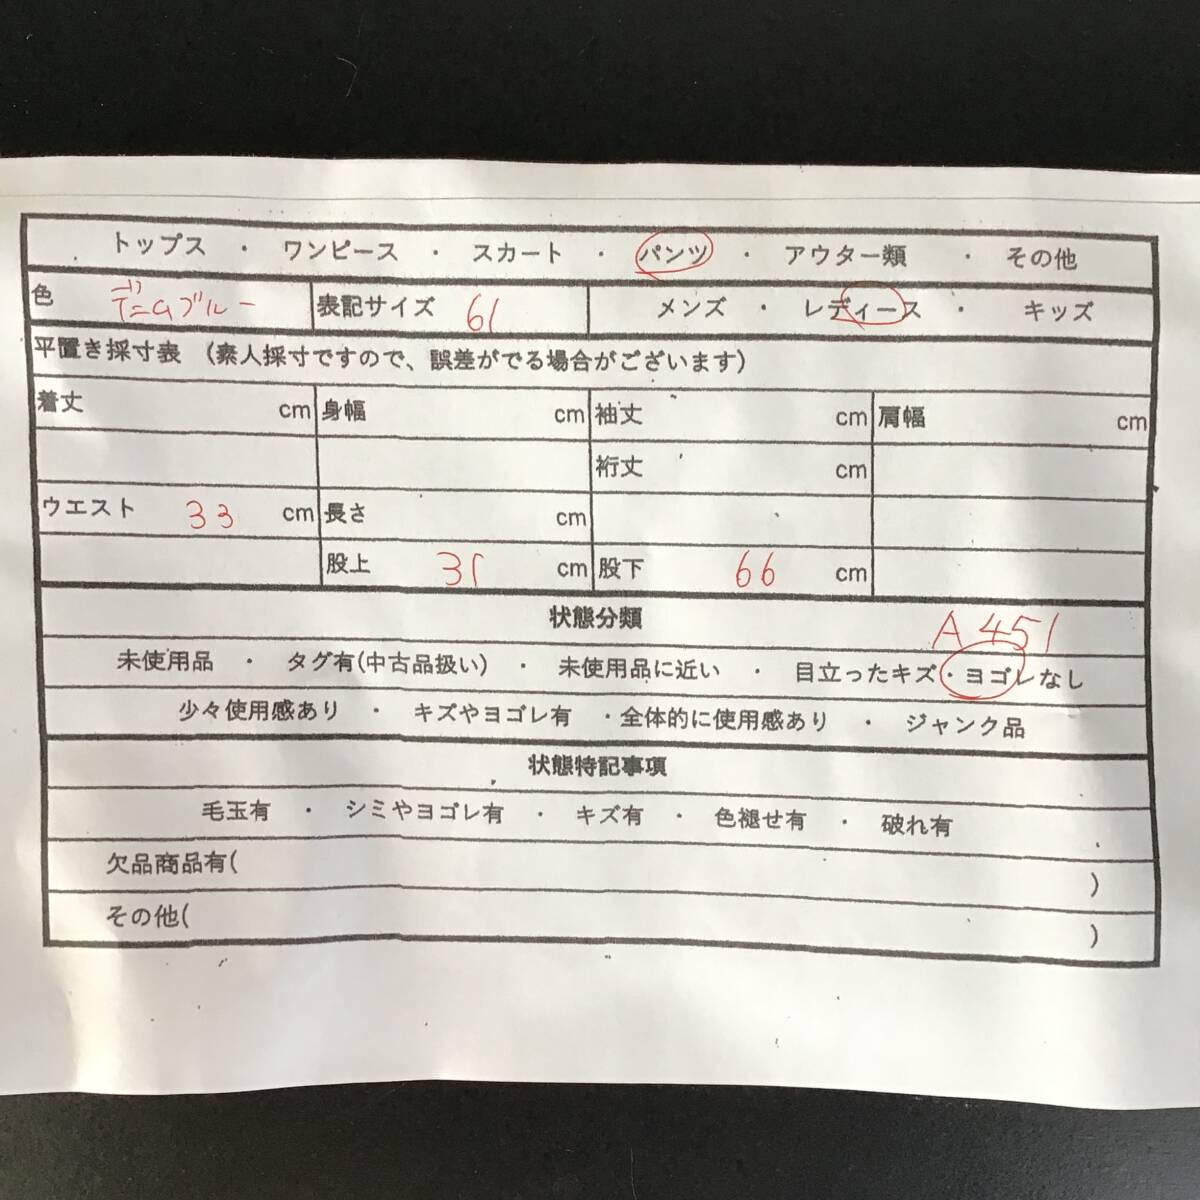 トップス ・ ワンピース ・ スカート ・ パンツ ・ アウター類 ・ その他
色 デニムブルー 表記サイズ 61 メンズ ・ レディース ・ キッズ
平置き採寸表 (素人採寸ですので、誤差がでる場合がございます)
着丈 cm 身幅 cm 袖丈 cm 肩幅 cm
裄丈 cm
ウエスト 33 cm 長さ cm
股上 31 cm 股下 66 cm
状態分類 A451
未使用品 ・ タグ有(中古品扱い) ・ 未使用品に近い ・ 目立ったキズ・ヨゴレなし
少々使用感あり ・ キズやヨゴレ有 ・全体的に使用感あり ・ ジャンク品
状態特記事項
毛玉有 ・ シミやヨゴレ有 ・ キズ有 ・ 色褪せ有 ・ 破れ有
欠品商品有( )
その他( )